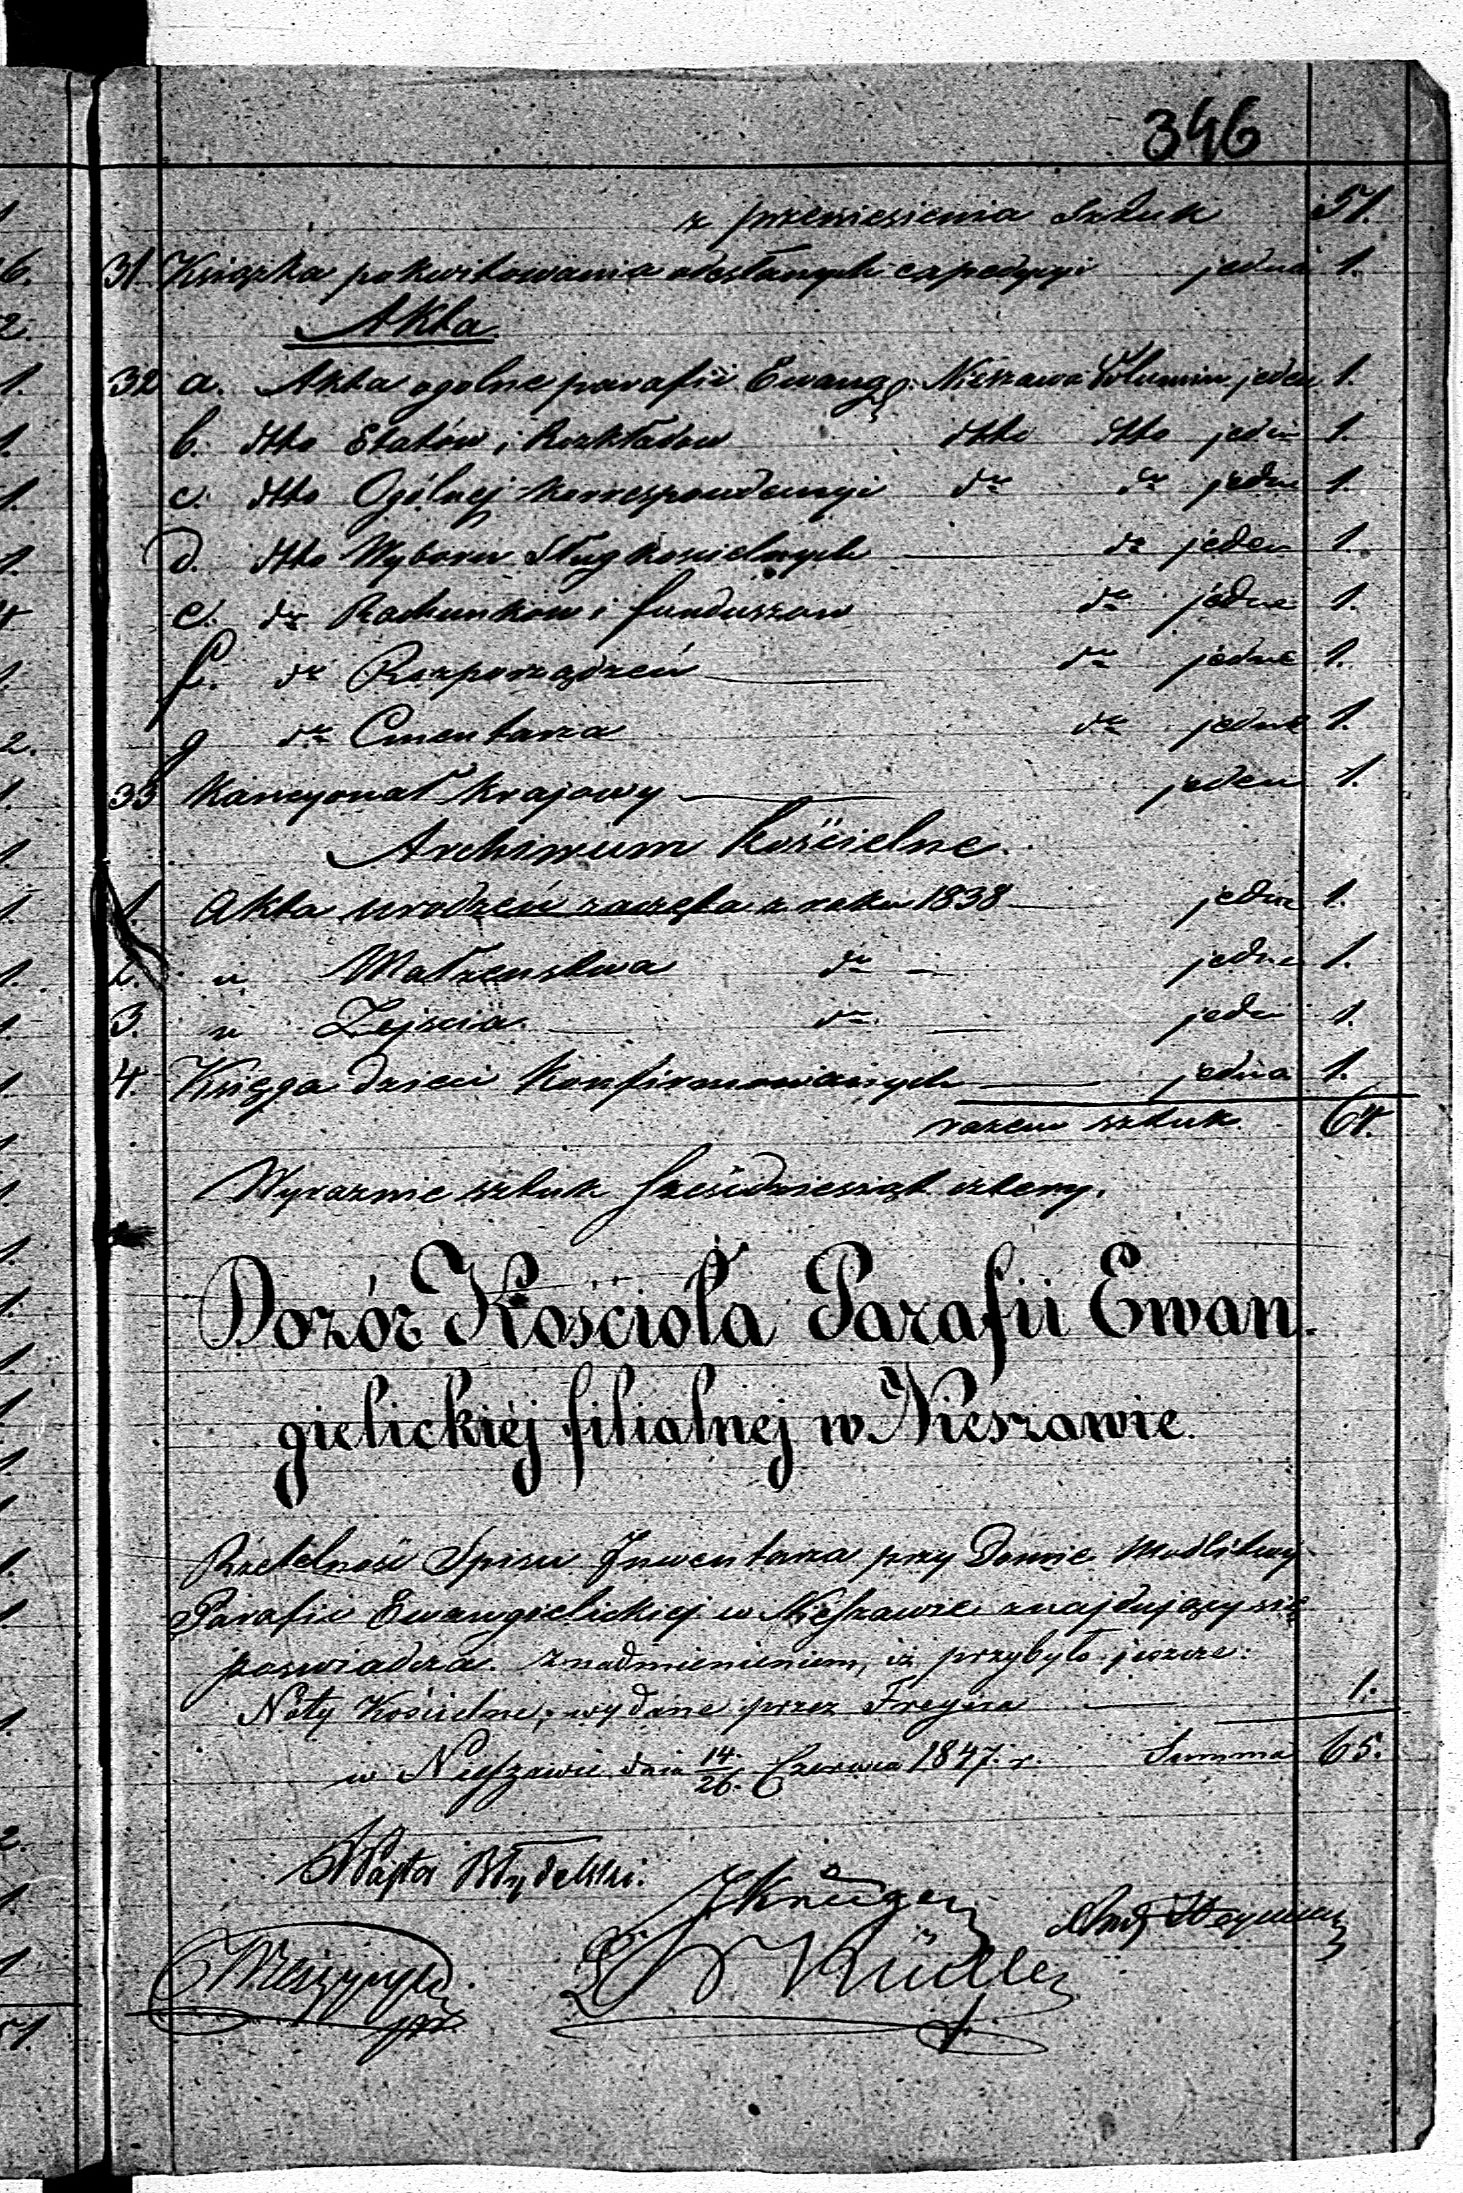 346
z przeniesienia Sztuk 51.
31 Książka pokwitowania odesłanych expedycyi jedna 1.
Akta
32 a. Akta ogolne parafii Ewang: Nieszawa Volumin jeden 1.
b. dtto Etatów i Rozkładow dtto dtto jeden 1.
c. dtto Ogólnej korrespondencyi do do jedne 1.
d. dtto Wyboru Sług kościelnych do jeden 1.
e. do Rachunkow i funduszow do jedne 1.
f. do Rozporządzeń do jedne 1.
g do Cmentarza do jedne 1.
33 Kancyonał krajowy jeden 1.
Archiwum Kościelne.
1. Akta urodzeń zaczęta z roku 1838 jedne 1.
2. " Małzenstwa do jedne 1.
3. " Zejscia do jedne 1.
4. Księga dzieci konfirmowanych jedna 1.
razem sztuk 64.
Wyraznie sztuk sześćdziesiąt cztery.
Dozór Kościoła Parafii Ewan
gielickiéj filialnej w Nieszawie.
Rzetelność Spisu Inwentarza przy Domie Modlitwy
Parafii Ewangielickiej w Nieszawie znajdujący się
poswiadcza znadmienieniem, iż przybyło jeszcze:
Nóty Kościelne, wydane przez Freyera 1.
w Nieszawie dnia 14/26 Czerwca 1847. r. Summa 65.
Pastor
Krüger
Rüdler